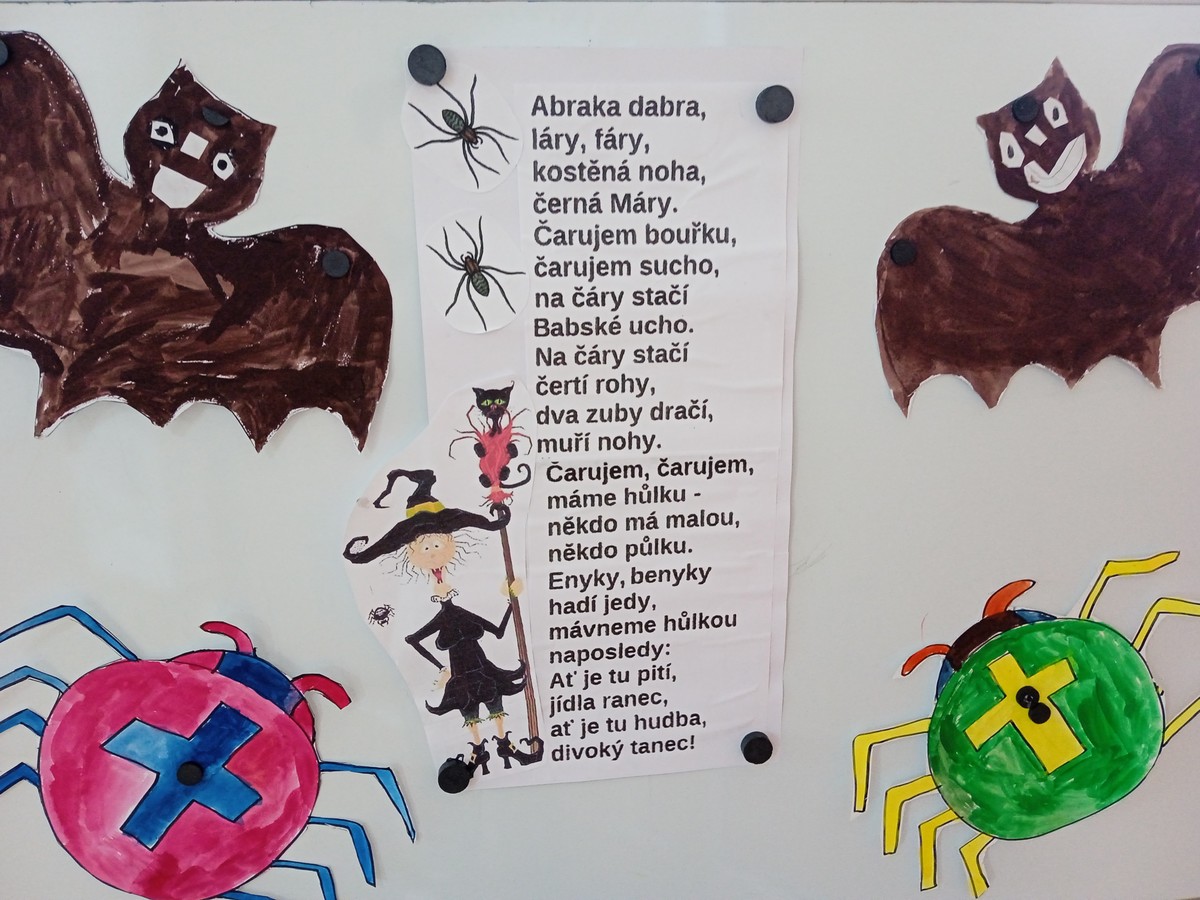 Abraka dabra,
láry, fáry,
kostěná noha,
černá Máry.
Čarujem bouřku,
čarujem sucho,
na čáry stačí
Babské ucho.
Na čáry stačí
čertí rohy,
dva zuby dračí,
muří nohy.
Čarujem, čarujem,
máme hůlku -
někdo má malou,
někdo půlku.
Enyky, benyky
hadí jedy,
mávneme hůlkou
naposledy:
Ať je tu pití,
jídla ranec,
ať je tu hudba,
divoký tanec!